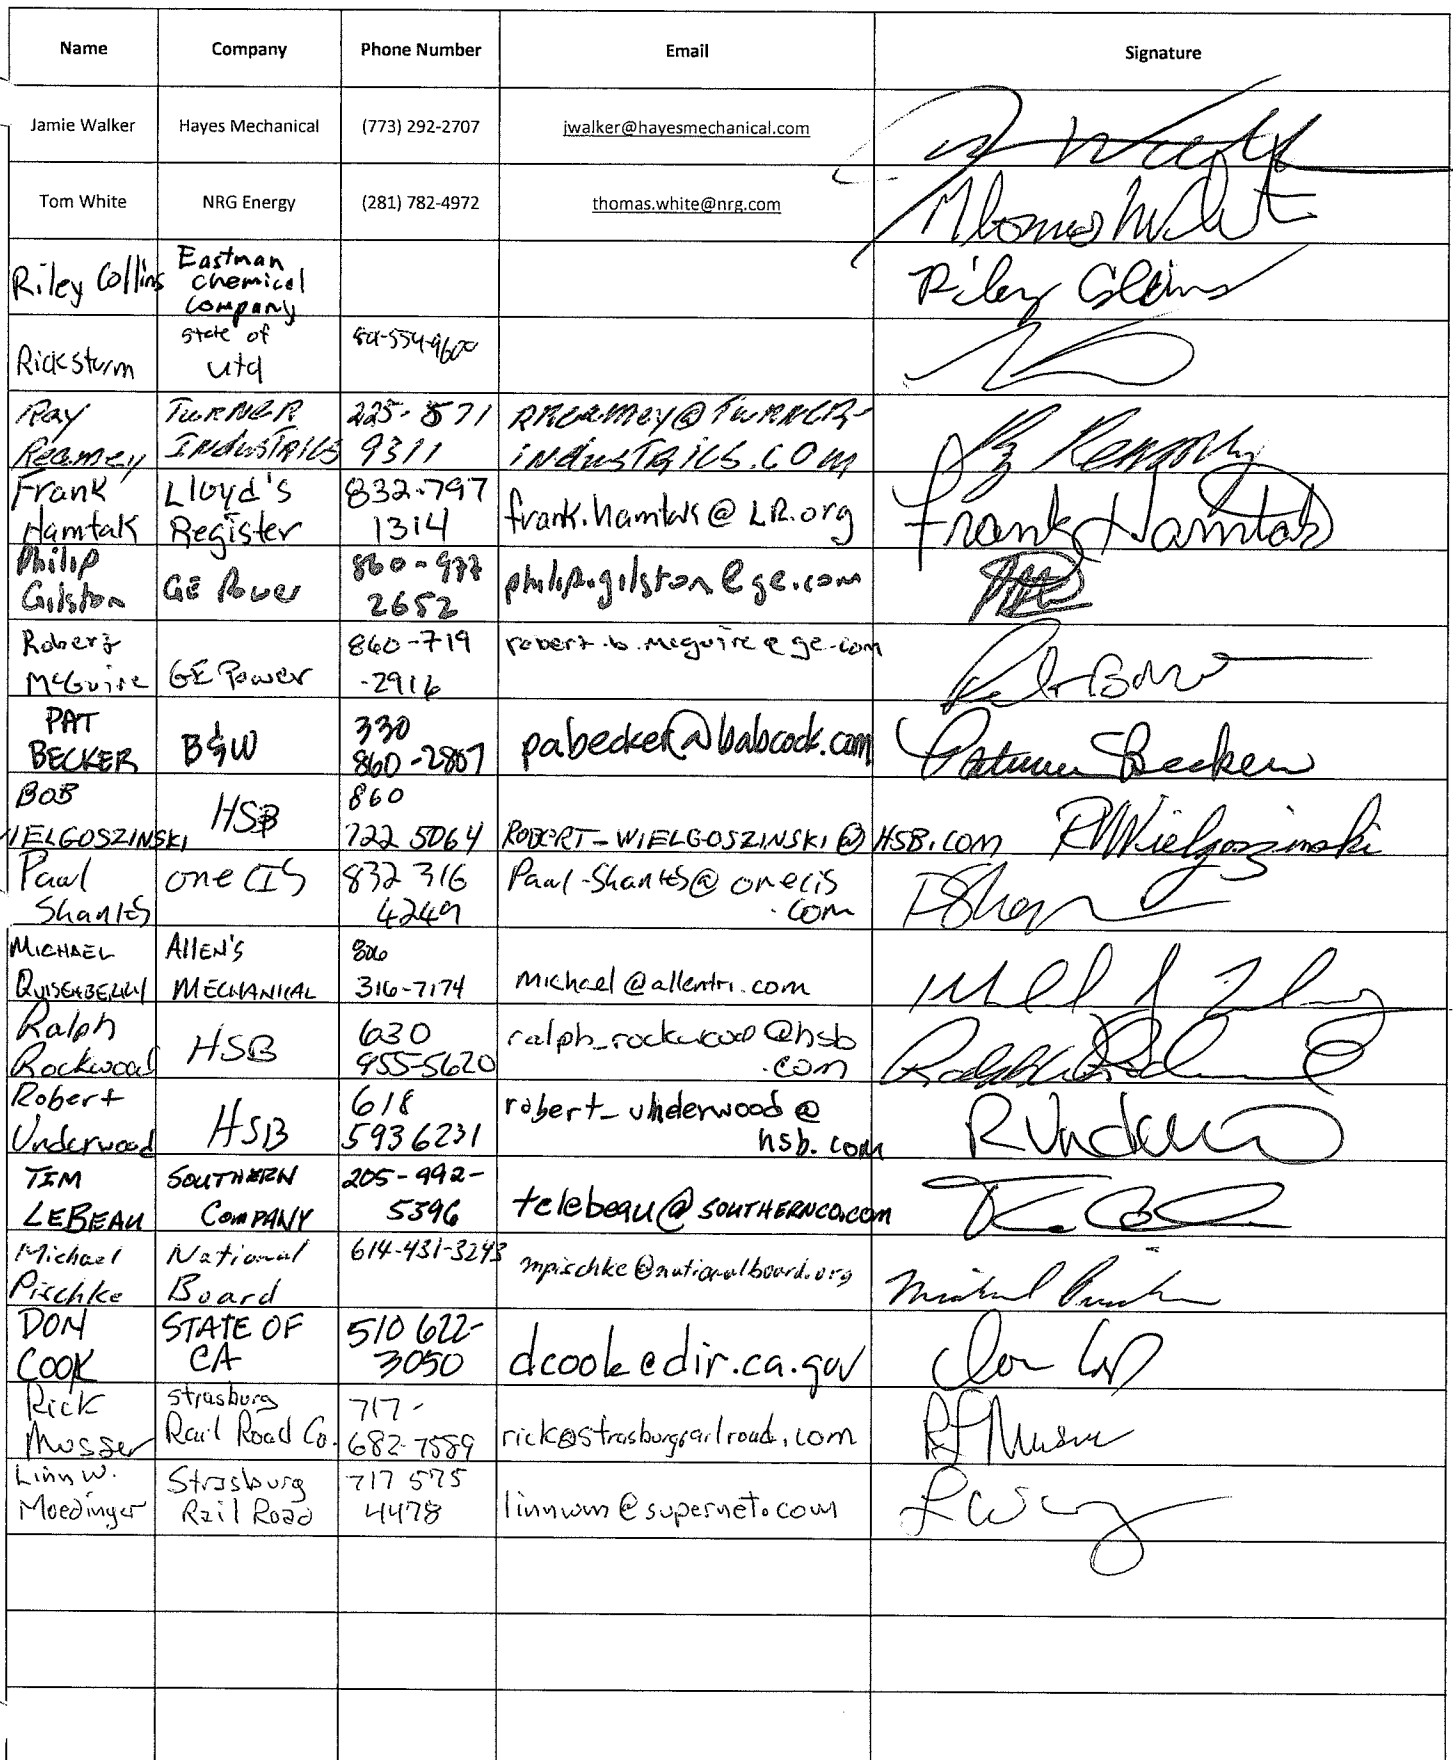 Name Company Phone Number Email Signature
Jamie Walker Hayes Mechanical (773) 292-2707 jwalker@hayesmechanical.com
Tom White NRG Energy (281) 782-4972 thomas.white@nrg.com
Riley Collins Eastman chemical company Riley Collins
Rick Sturm state of 801-554-9600
Ray Reamey TURNER INDUSTRIES 225-571 9311 RREAMEY@TURNER-INDUSTRIES.COM
Frank Hamtak Lloyd's Register 832-797 1314 frank.hamtak@LR.org Frank Hamtak
Philip Gilston GE Power 2652 philip.gilston@ge.com
Robert McGuire GE Power 860-719 -2916 robert.b.mcguire@ge.com
PAT BECKER B&W 330 860-2807 pabecker@babcock.com
BOB WIELGOSZINSKI HSB 860 722 5064 ROBERT_WIELGOSZINSKI@HSB.COM RWielgoszinski
Paul Shanks one CIS 832 316 4249 Paul-Shanks@onecis.com
MICHAEL QUISENBERRY ALLEN'S MECHANICAL 806 316-7174 michael@allentri.com
Ralph Rockwood HSB 630 955-5620 ralph_rockwood@hsb.com
Robert Underwood HSB 618 5936231 robert_underwood@hsb.com
TIM LEBEAU SOUTHERN COMPANY 205-992-5396 telebeau@SOUTHERNCO.com
Michael Pischke National Board 614-431-3243 mpischke@nationalboard.org
DON COOK STATE OF CA 510 622-3050 dcook@dir.ca.gov
Rick Musser Strasburg Rail Road Co. 717-682-7589 rick@strasburgrailroad.com
Linn W. Moedinger Strasburg Rail Road 717 575 4478 linnwm@supernet.com